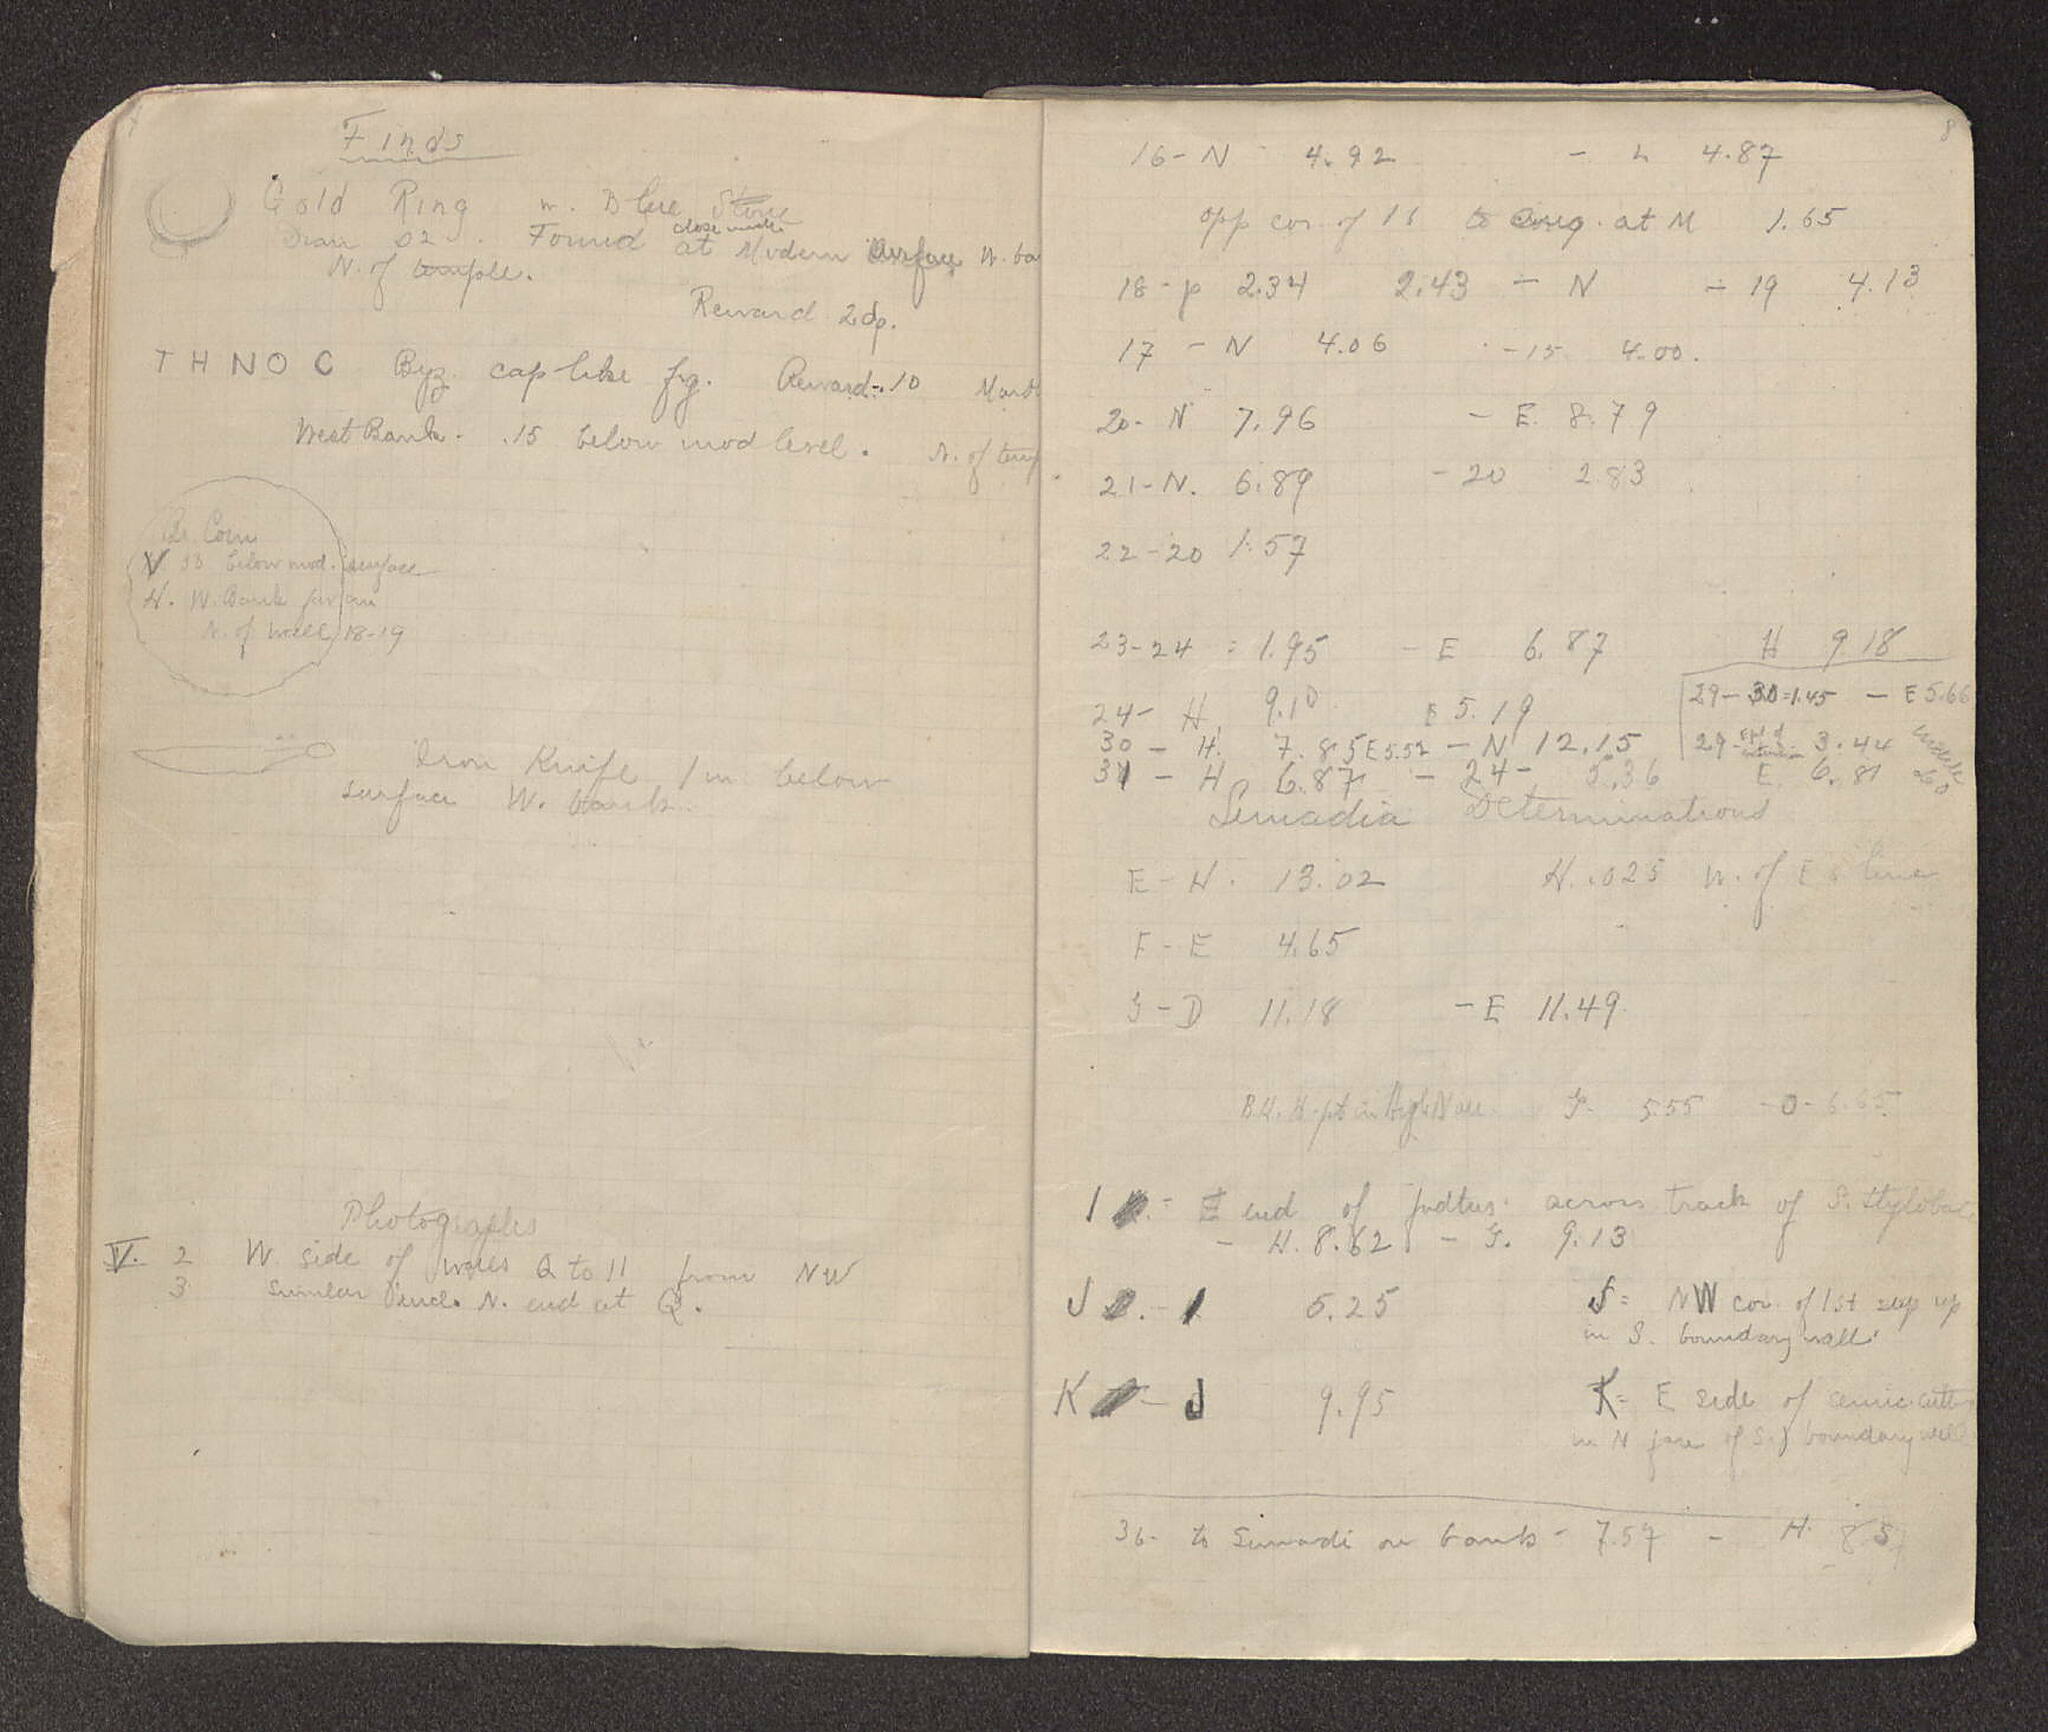 Finds
Gold Ring w. Blue Stone
Diam 02. Found at Modern Surface W. ba
close under
N. of temple.
Reward 2dp.
THNOC Byz. cap like fig. Reward .10
West Bank. .15 below mod level. N. of temp
Coin
V 33 below mod. surface
H. W. Bank
N. of Well 18-19
Iron Knife 1m below
surface W. bank.
Photographs
V. 2 W. side of walls Q to 11 from NW
3 Similar incl. N. end at Q.
8
16-N 4.92 - L 4.87
opp cor. of 16 to at M 1.65
18-p 2.34 2.43 - N - 19 4.13
17 - N 4.06 - 15 4.00.
20 - N 7.96 - E. 8.79
21-N. 6.89 - 20 2.83
22-20 1.57
23-24 = 1.95 - E 6.87 H 9.18
24- H 9.10 E 5.19
29-30=1.45 - E 5.66
30 - H. 7.85 E 5.52 - N 12.15
29 - 3.44
31 - H 6.87 - 24 - 5.36 E. 6.81
Simadia Determinations
E-H. 13.02 H. .025 W. of E line
F-E 4.65
G-D 11.18 - E 11.49
G- 5.55 - O - 6.65
I = E end of across track of S. Stylobat
- H. 8.62 - G. 9.13
J - I 5.25 J = NW cor. of 1st step up
in S. boundary wall.
K - J 9.95 K = E side of semic. cutt
in N face of S. boundary wall
36- to Simadi on bank - 7.57 - H. 8.5